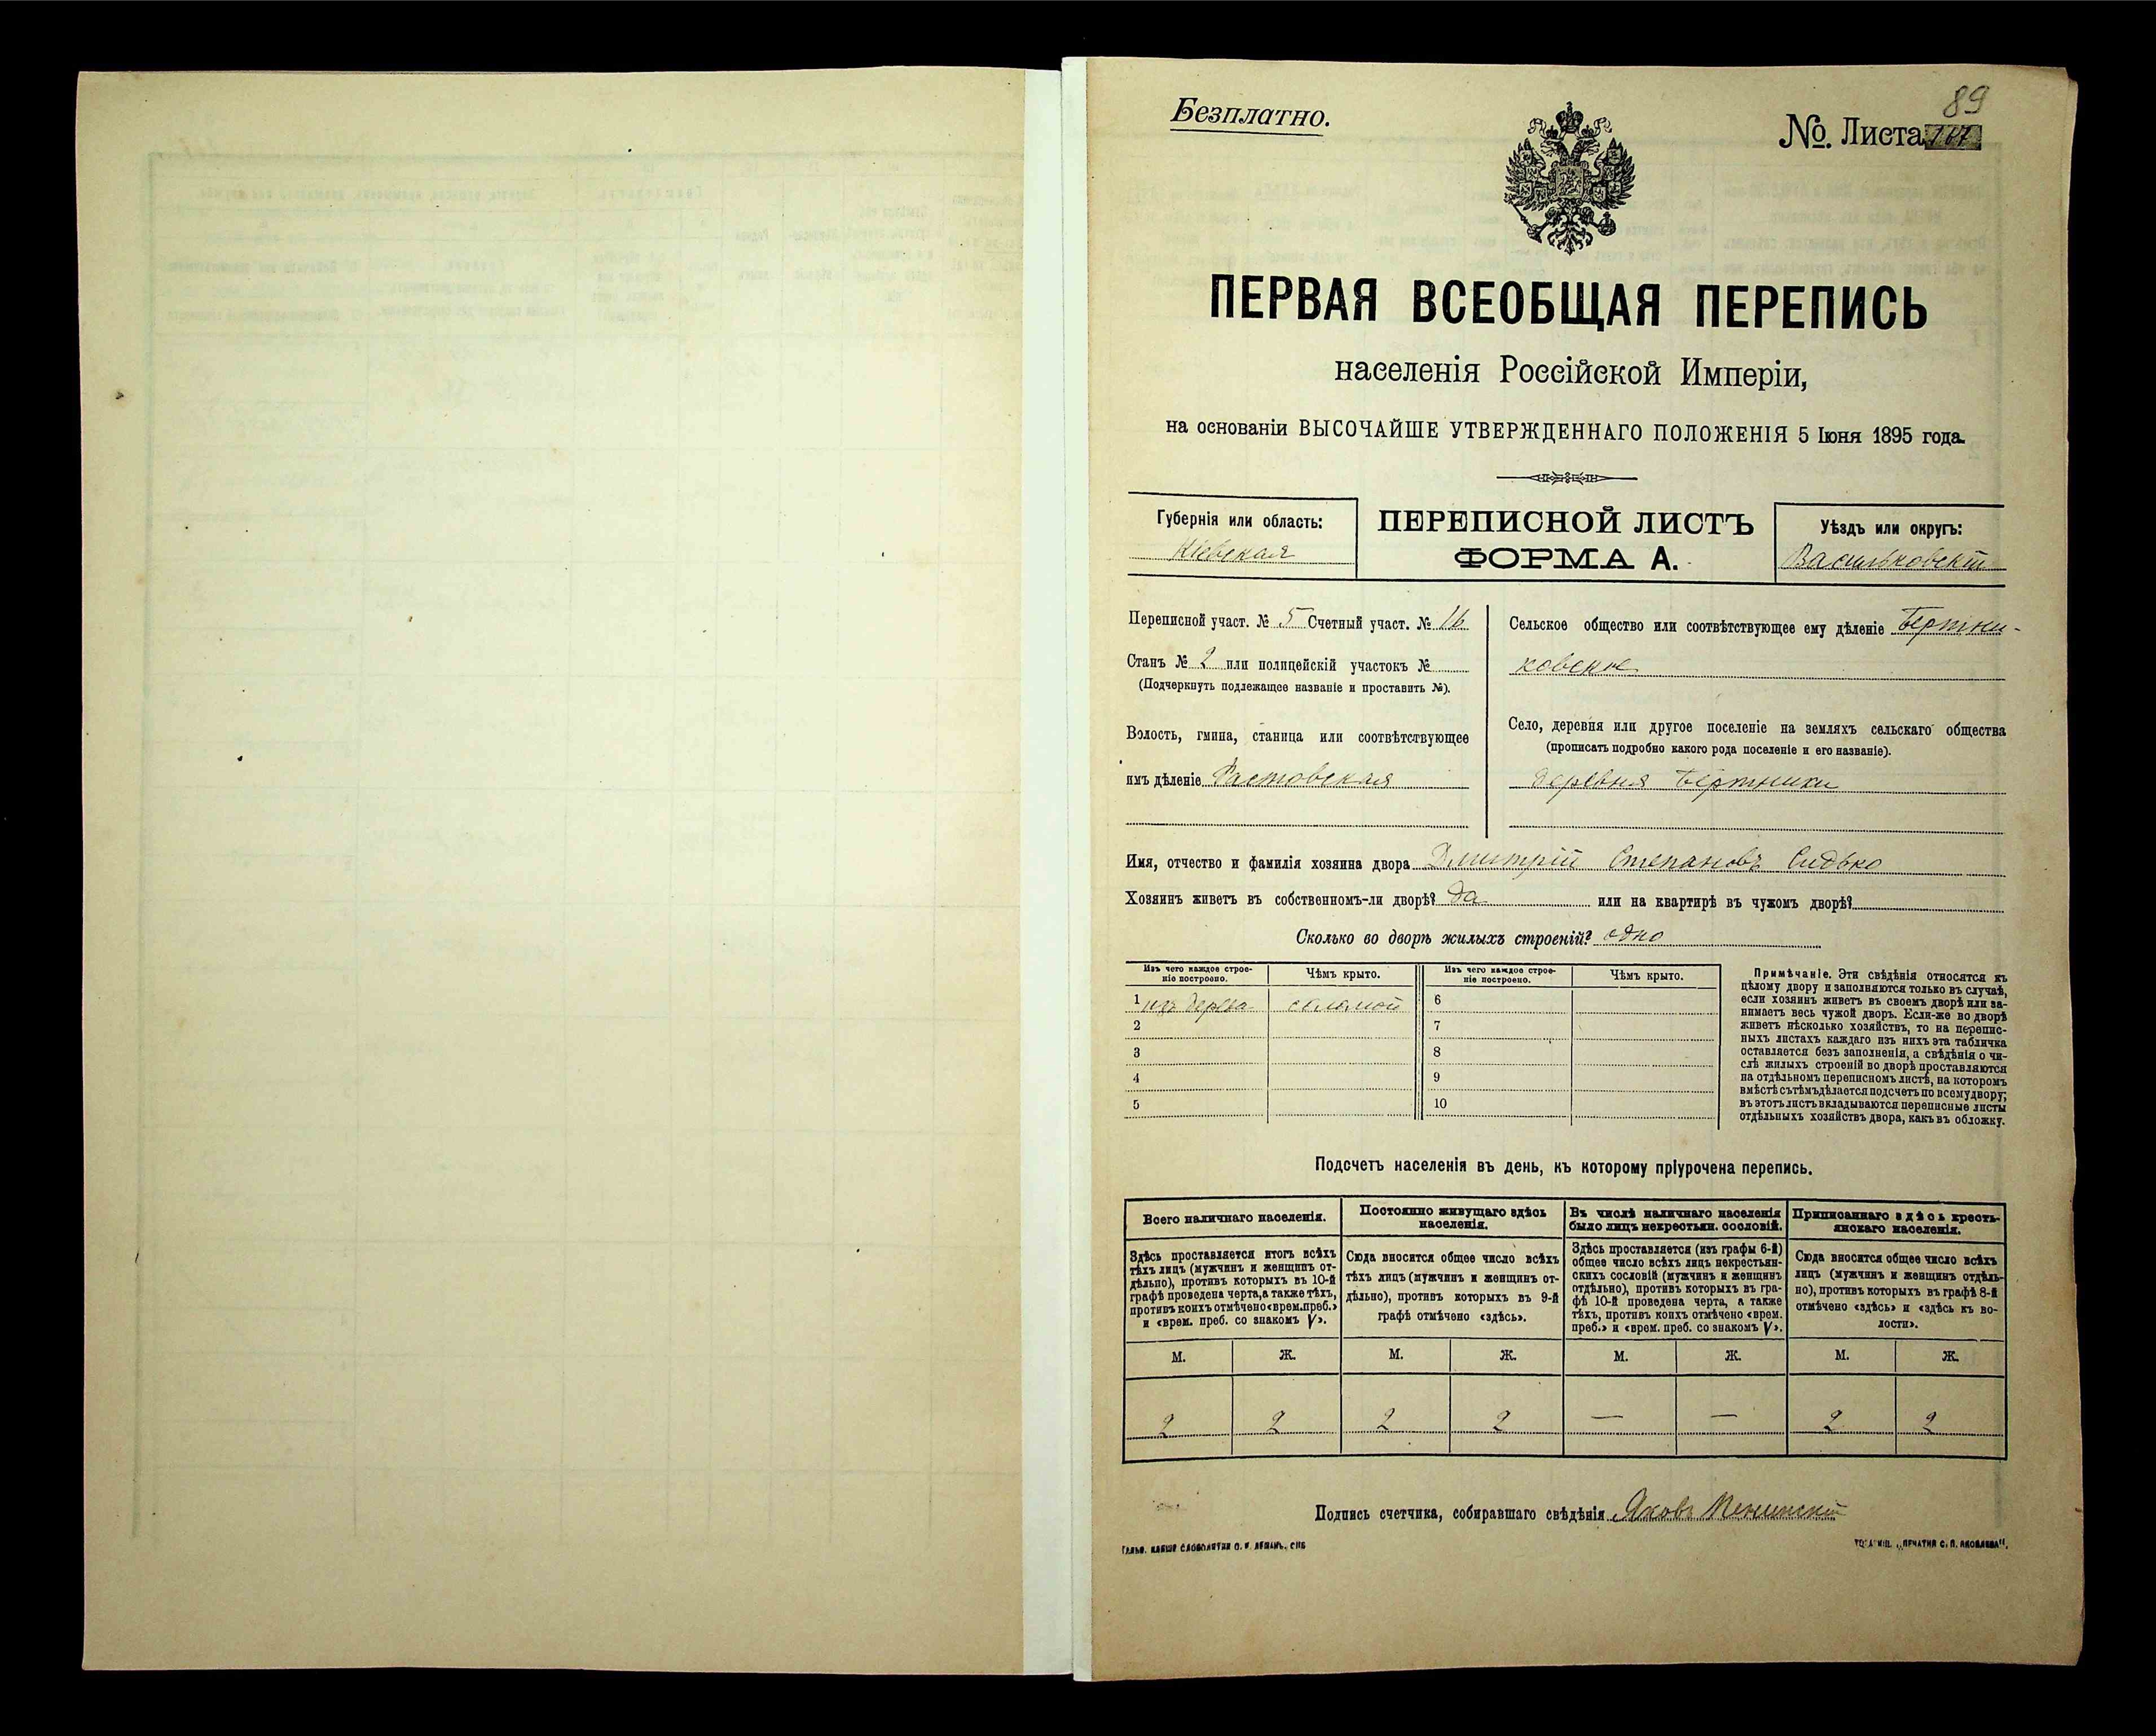 89
Безплатно.
№. Листа 167
ПЕРВАЯ ВСЕОБЩАЯ ПЕРЕПИСЬ
населенія Россійской Имперіи,
на основаніи ВЫСОЧАЙШЕ УТВЕРЖДЕННАГО ПОЛОЖЕНІЯ 5 Іюня 1895 года.
Губернія или область:
Кіевская
ПЕРЕПИСНОЙ ЛИСТЪ
ФОРМА А.
Уѣздъ или округъ:
Васильковскій
Переписной участ. № 5 Счетный участ. № 16
Станъ № 2 или полицейскій участокъ №
(Подчеркнуть подлежащее названіе и проставить №).
Волость, гмина, станица или соотвѣтствующее
имъ дѣленіе
Сельское общество или соотвѣтствующее ему дѣленіе Бертни-
ковское
Село, деревня или другое поселеніе на земляхъ сельскаго общества
(прописать подробно какого рода поселеніе и его названіе).
деревня Бертники
Имя, отчество и фамилія хозяина двора Дмитрій Степановъ Сидько
Хозяинъ живетъ въ собственномъ-ли дворѣ? да или на квартирѣ въ чужомъ дворѣ?
Сколько во дворѣ жилыхъ строеній? одно
Изъ чего каждое строе-
ніе построено.
Чѣмъ крыто.
Изъ чего каждое строе-
ніе построено.
Чѣмъ крыто.
1 изъ дерева соломой 6
2 7
3 8
4 9
5 10
Примѣчаніе. Эти свѣдѣнія относятся къ
цѣлому двору и заполняются только въ случаѣ,
если хозяинъ живетъ въ своемъ дворѣ или за-
нимаетъ весь чужой дворъ. Если-же во дворѣ
живетъ нѣсколько хозяйствъ, то на перепис-
ныхъ листахъ каждаго изъ нихъ эта табличка
оставляется безъ заполненія, а свѣдѣнія о чи-
слѣ жилыхъ строеній во дворѣ проставляются
на отдѣльномъ переписномъ листѣ, на которомъ
вмѣстѣ съ тѣмъ дѣлается подсчетъ по всему двору;
въ этотъ листъ вкладываются переписные листы
отдѣльныхъ хозяйствъ двора, какъ въ обложку.
Подсчетъ населенія въ день, къ которому пріурочена перепись.
Всего наличнаго населенія.
Постоянно живущаго здѣсь
населенія.
Въ числѣ наличнаго населенія
было лицъ некрестьян. сословій.
Приписаннаго здѣсь кресть-
янскаго населенія.
Здѣсь проставляется итогъ всѣхъ
тѣхъ лицъ (мужчинъ и женщинъ от-
дѣльно), противъ которыхъ въ 10-й
графѣ проведена черта, а также тѣхъ,
противъ коихъ отмѣчено «врем. преб.»
и «врем. преб. со знакомъ V».
Сюда вносится общее число всѣхъ
тѣхъ лицъ (мужчинъ и женщинъ от-
дѣльно), противъ которыхъ въ 9-й
графѣ отмѣчено «здѣсь».
Здѣсь проставляется (изъ графы 6-й)
общее число всѣхъ лицъ некрестьян-
скихъ сословій (мужчинъ и женщинъ
отдѣльно), противъ которыхъ въ гра-
фѣ 10-й проведена черта, а также
тѣхъ, противъ коихъ отмѣчено «врем.
преб.» и «врем. преб. со знакомъ V».
Сюда вносится общее число всѣхъ
лицъ (мужчинъ и женщинъ отдѣль-
но), противъ которыхъ въ графѣ 8-й
отмѣчено «здѣсь» и «здѣсь къ во-
лости».
М. Ж. М. Ж. М. Ж. М. Ж.
2 2 2 2 — — 2 2
Подпись счетчика, собиравшаго свѣдѣнія Яковъ